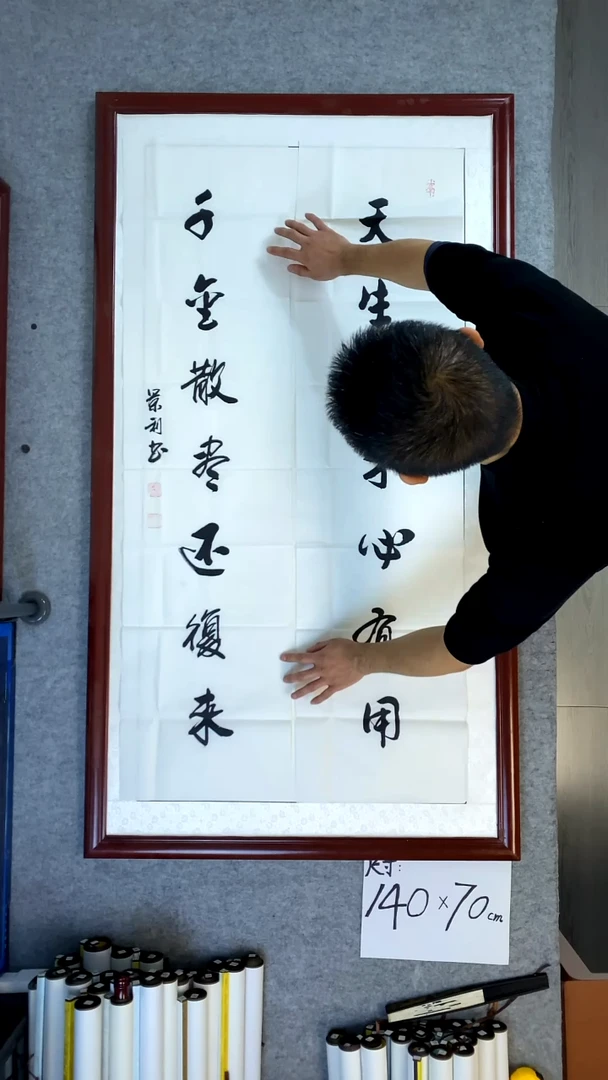 天生才必有用
千金散尽还復来
景利书
尺寸:
140×70cm